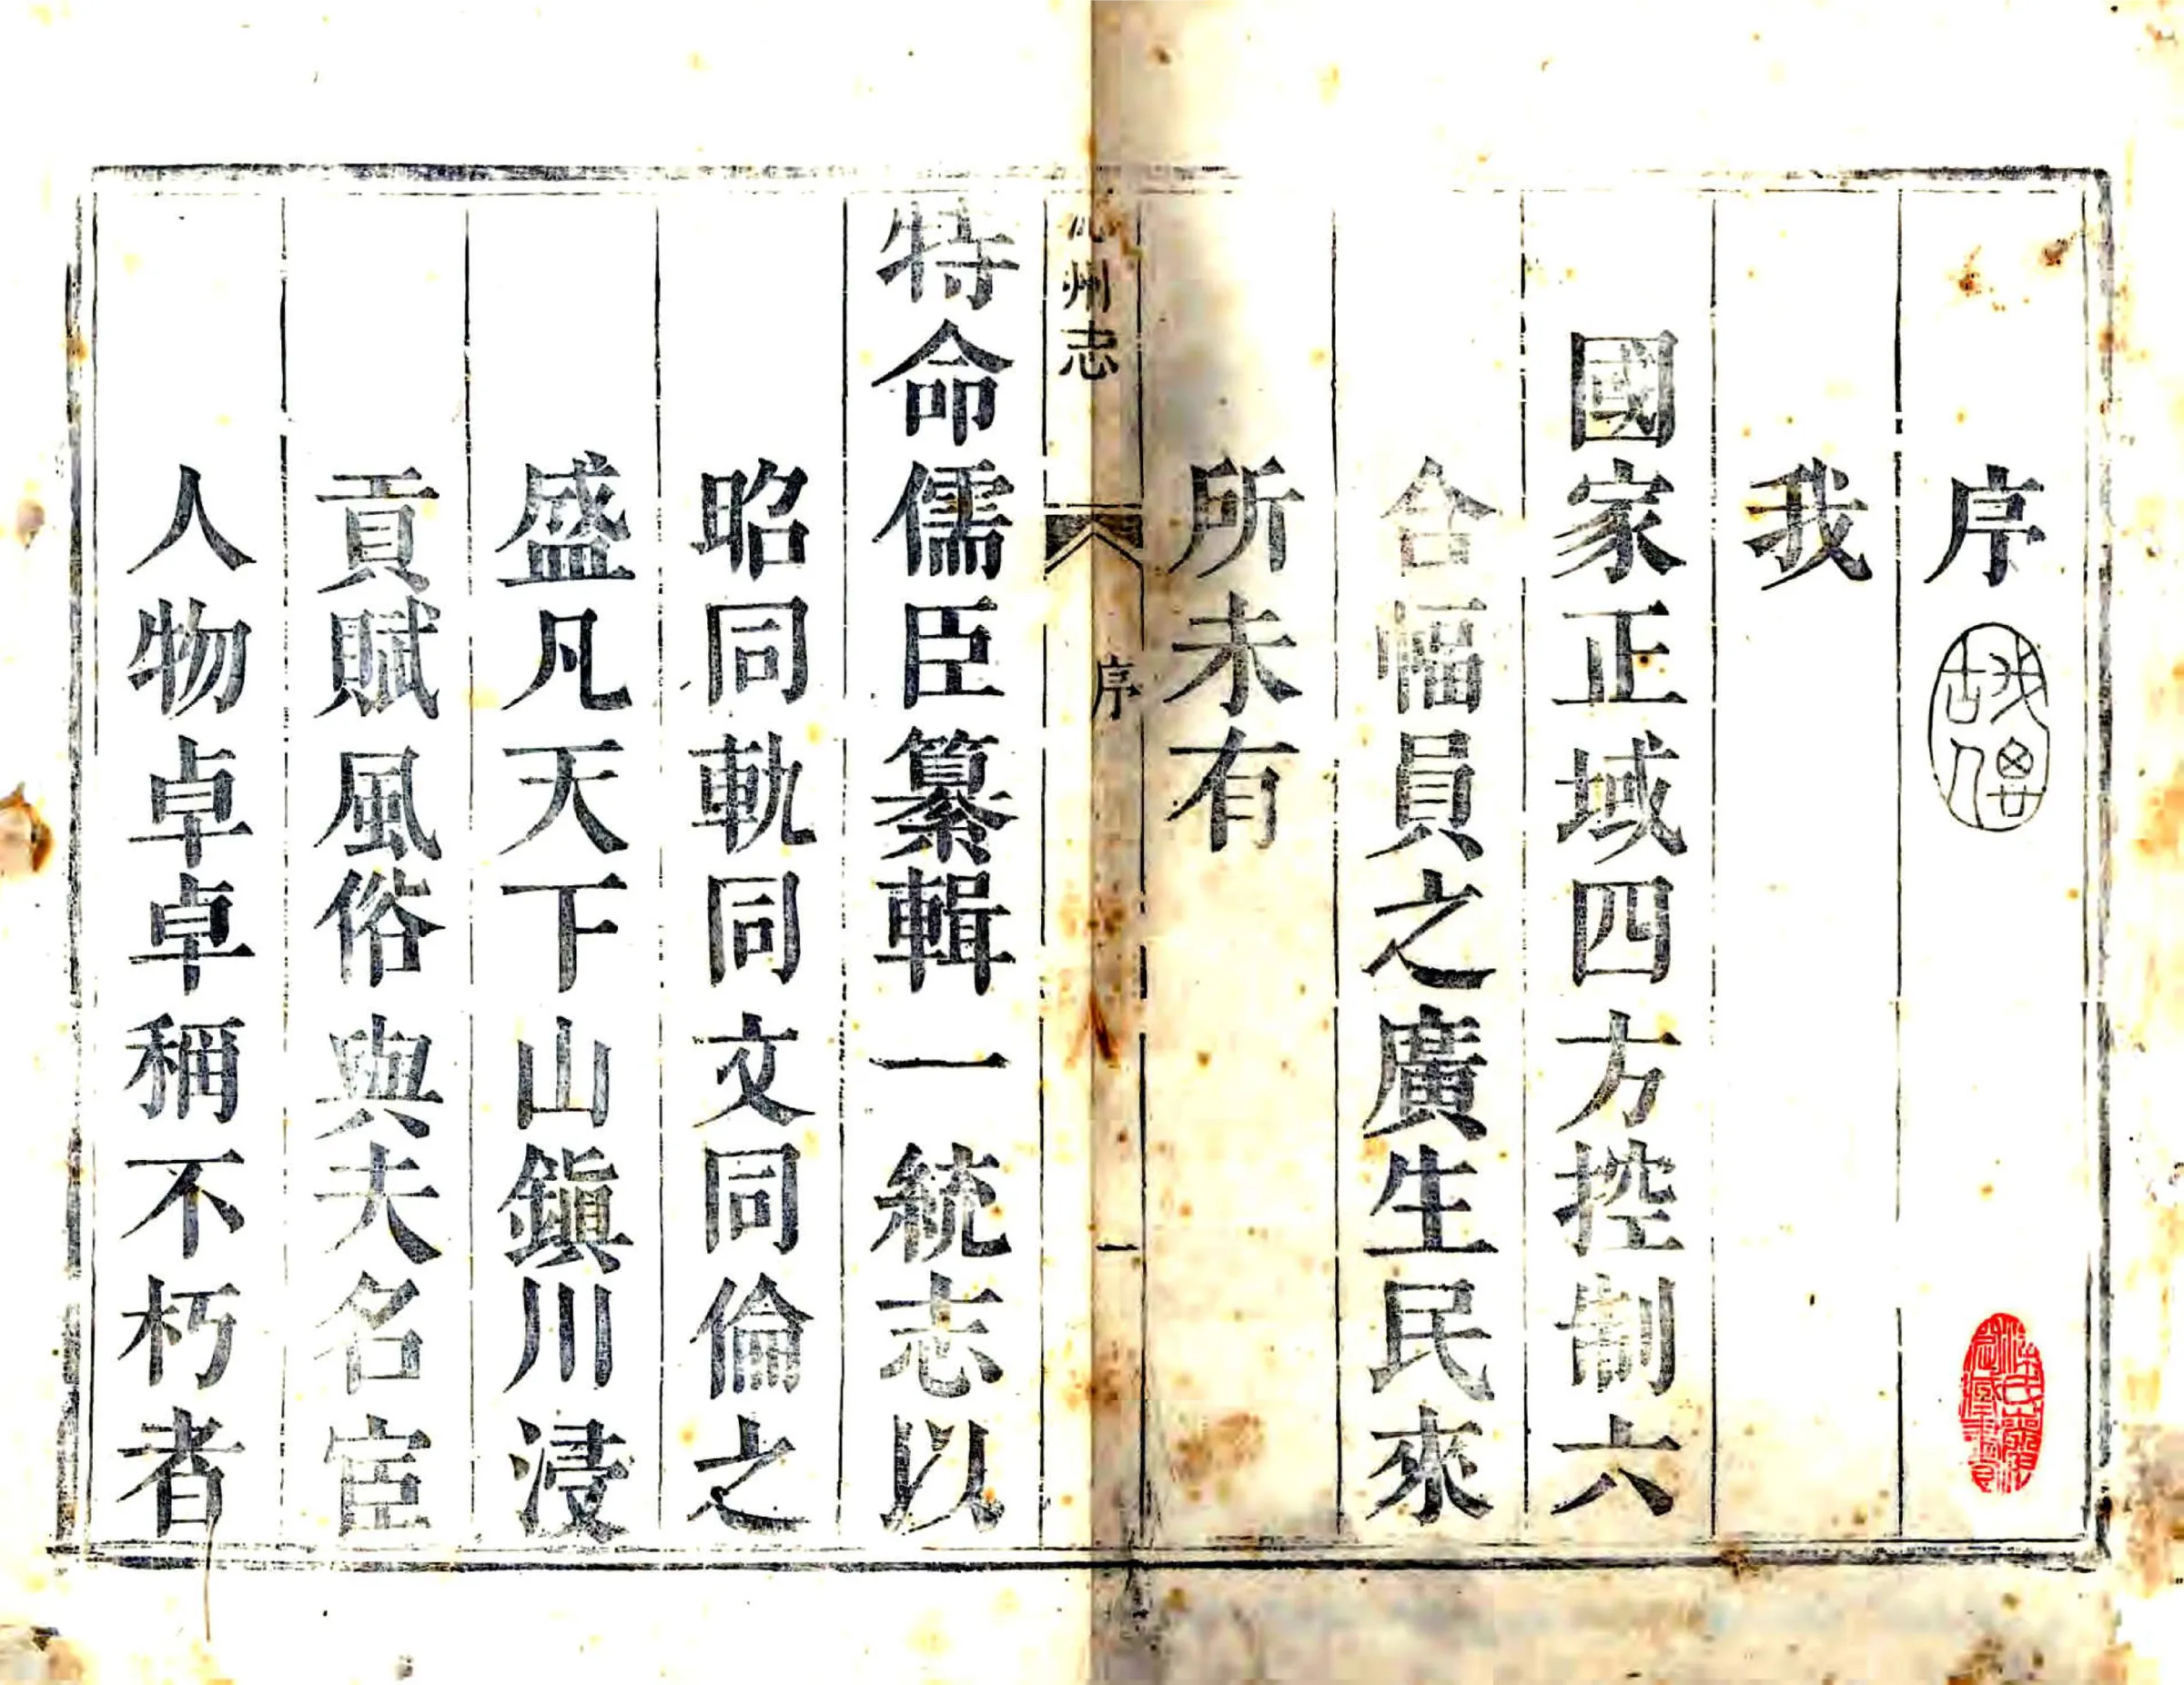 序
我
國家正域四方控制六
合幅員之廣生民來
所未有
州志
序
一
特命儒臣纂輯一統志以
昭同軌同文同倫之
盛凡天下山鎭川浸
貢賦風俗與夫名宦
人物卓卓稱不朽者